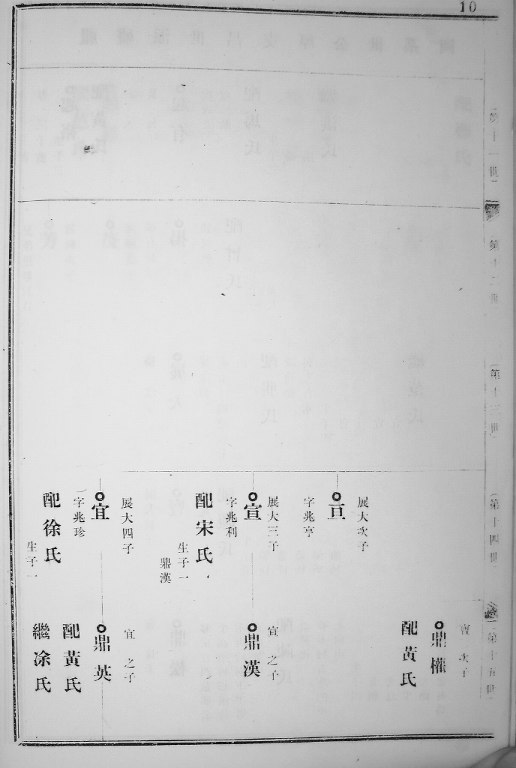 10
第十一世
第十二世
第十三世
第十四世
第十五世
展大次子
亘
字兆亨
展大三子
宣
字兆利
配宋氏
生子一
鼎漢
展大四子
宜
字兆珍
配徐氏
生子一
次子
鼎權
配黃氏
宣之子
鼎漢
宜之子
鼎英
配黃氏
繼凃氏